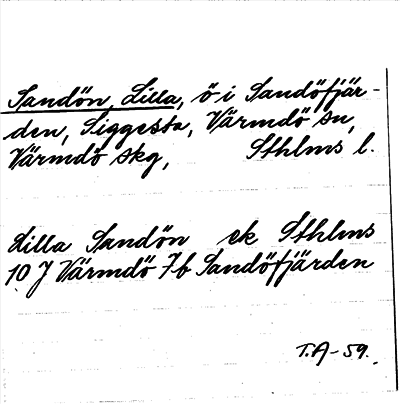 Sandön, Lilla, ö i Sandöfjär-
den, Siggesta, Värmdö sn,
Värmdö skg, Sthlms l.
Lilla Sandön ek Sthlms
10 J Värmdö 7b Sandöfjärden
T.A-59.